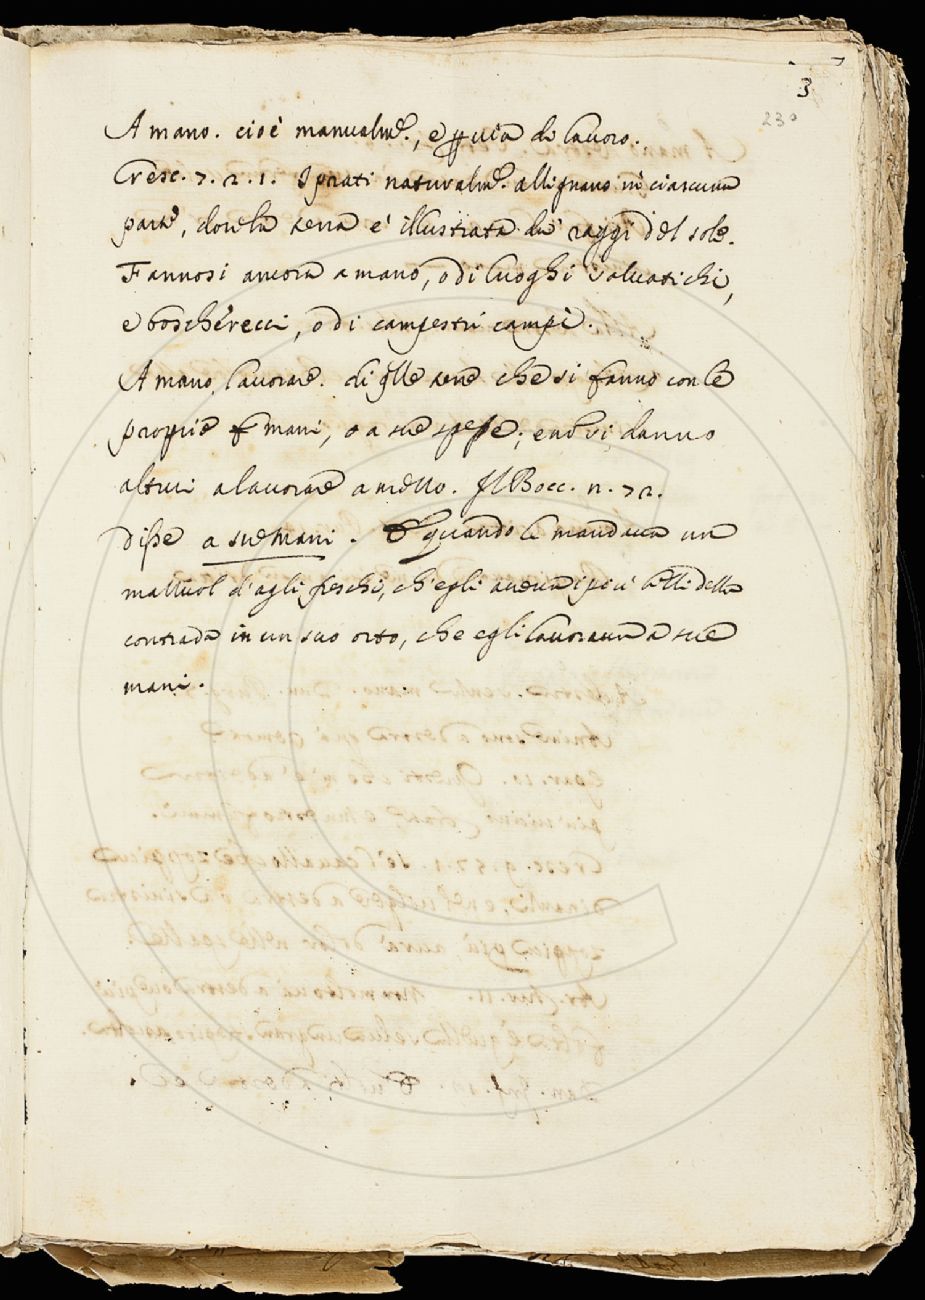 3
230
A mano. cioè manualm.e, e p via di lavoro.
Cresc. 7. 2. 1. I prati naturalm.e allignano in ciascuna
parte, dove la terra è illustrata da' raggi del sole.
Fannosi ancora a mano, o di luoghi salvatichi,
e boscherecci, o di campestri campi.
A mano lavorare. di qlle terre che si fanno con le
proprie mani, o a sue spese, e non si danno
altrui a lavorare a mezzo. Il Bocc. n. 72.
disse a sue mani. E quando le mandava un
mazzuol d'agli freschi, ch'egli aveva i più belli della
contrada in un suo orto, che egli lavorava a sue
mani.